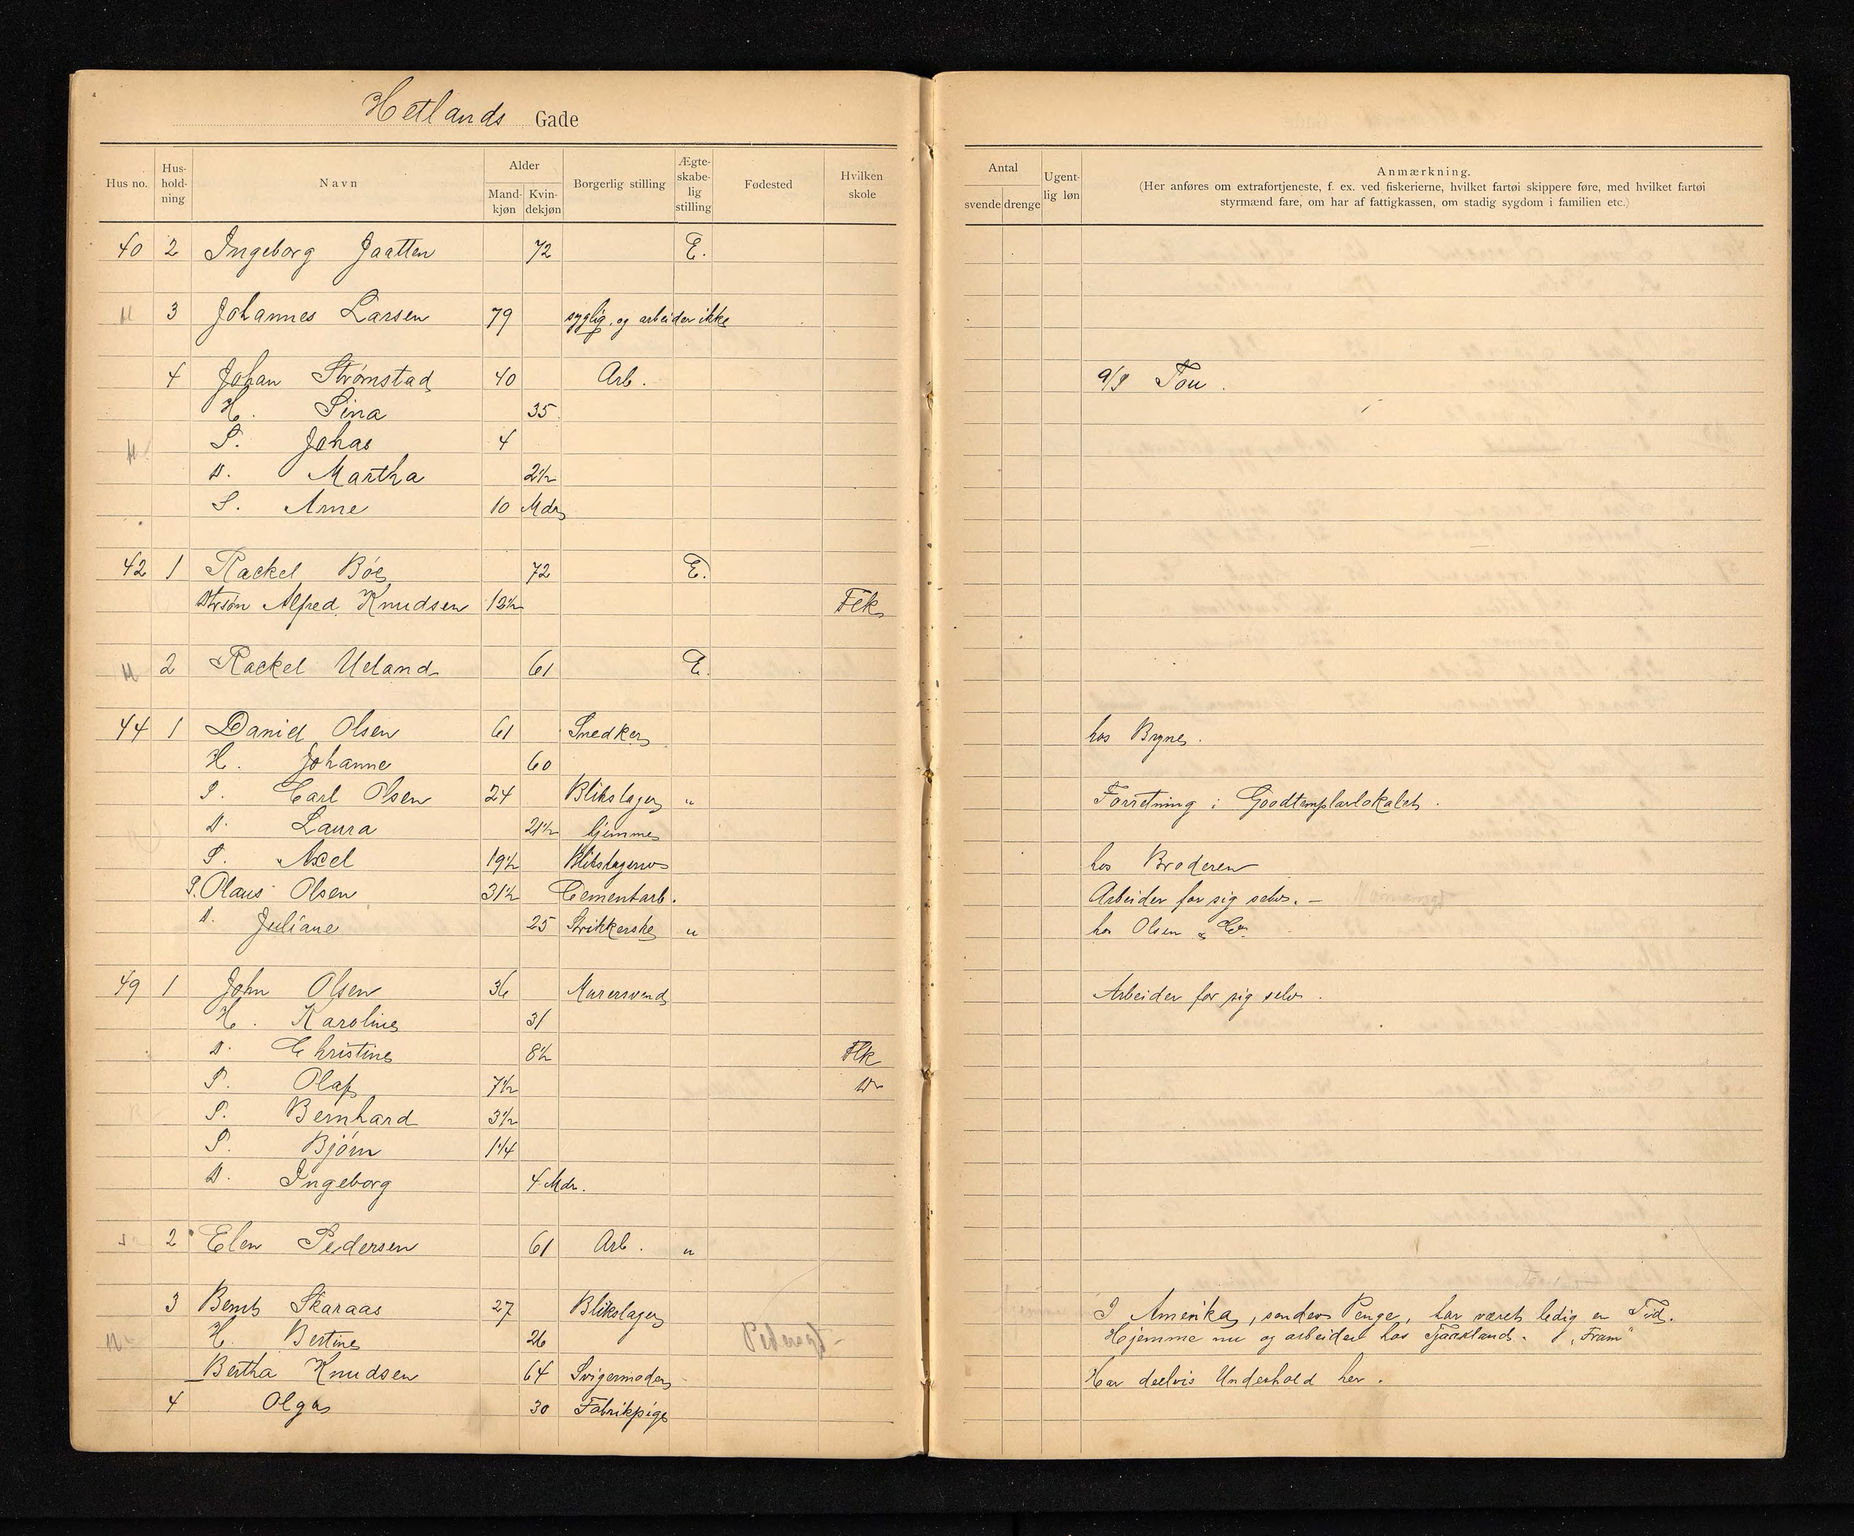 Hetlands Gade
Hus no. Hus-hold-ning Navn Alder Mand-kjøn Kvin-dekjøn Borgerlig stilling Ægte-skabe-lig stilling Fødested Hvilken skole Antal svende drenge Ugent-lig løn Anmærkning.
(Her anføres om extrafortjeneste, f. ex. ved fiskerierne, hvilket fartøi skippere føre, med hvilket fartøi
styrmænd fare, om har af fattigkassen, om stadig sygdom i familien etc.)
40 2 Ingeborg Jaatten 72 E.
3 Johannes Larsen 79 syglig. og arbeider ikke
4 Johan Strømstad 40 Arb. a/S Tou.
H. Sina 35
S. Johas 4
D. Martha 2½
S. Arne 10 Mdr
42 1 Rackel Bøe 72 E.
Drsøn Alfred Knudsen 12½ Flk
2 Rackel Ueland 61 E.
44 1 Daniel Olsen 61 Snedker hos Bryne.
H. Johanne 60
S. Carl Olsen 24 Blikslager " Forretning i Goodtemplarlokalet.
D. Laura 21½ hjemme
S. Axel 19½ Blikslagersv hos Broderen
S. Olaus Olsen 31½ Cementarb. Arbeider for sig selv. –
D. Juliane 25 Strikkerske " hos Olsen & Co.
49 1 John Olsen 36 Murersvend Arbeider for sig selv.
H. Karoline 31
D. Christine 8½ Flk
S. Olaf 7½ Do
S. Bernhard 3½
S. Bjørn 1¼
D. Ingeborg 4 Mdr.
2 Elen Pedersen 61 Arb. "
3 Bernt Skaraas 27 Blikslager I Amerika, sender Penge, har været ledig en Tid.
H. Bertine 26 Hjemme nu og arbeider hos Tjaaland. "Fram"
Bertha Knudsen 64 Svigermoder Har delvis Underhold her.
4 Olga 30 Fabrikpige